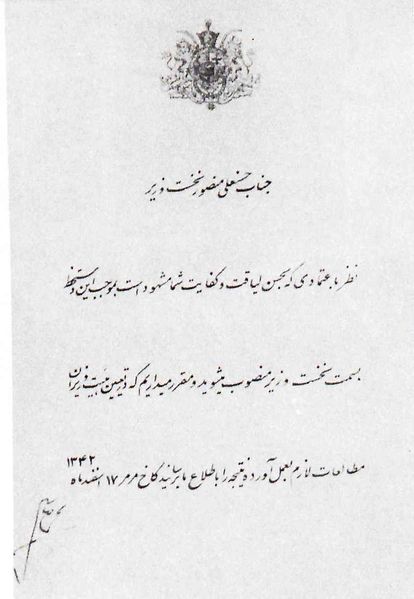 جناب حسنعلی منصور نخست وزیر
نظر باعتمادی که بحسن لیاقت و کفایت شما مشهود است بموجب این دستخط
بسمت نخست وزیر منصوب میشوید و مقرر میداریم که در تعیین هیئت وزیران
مطالعات لازم بعمل آورده نتیجه را باطلاع ما برسانید کاخ مرمر ۱۷ اسفند ماه ۱۳۴۲